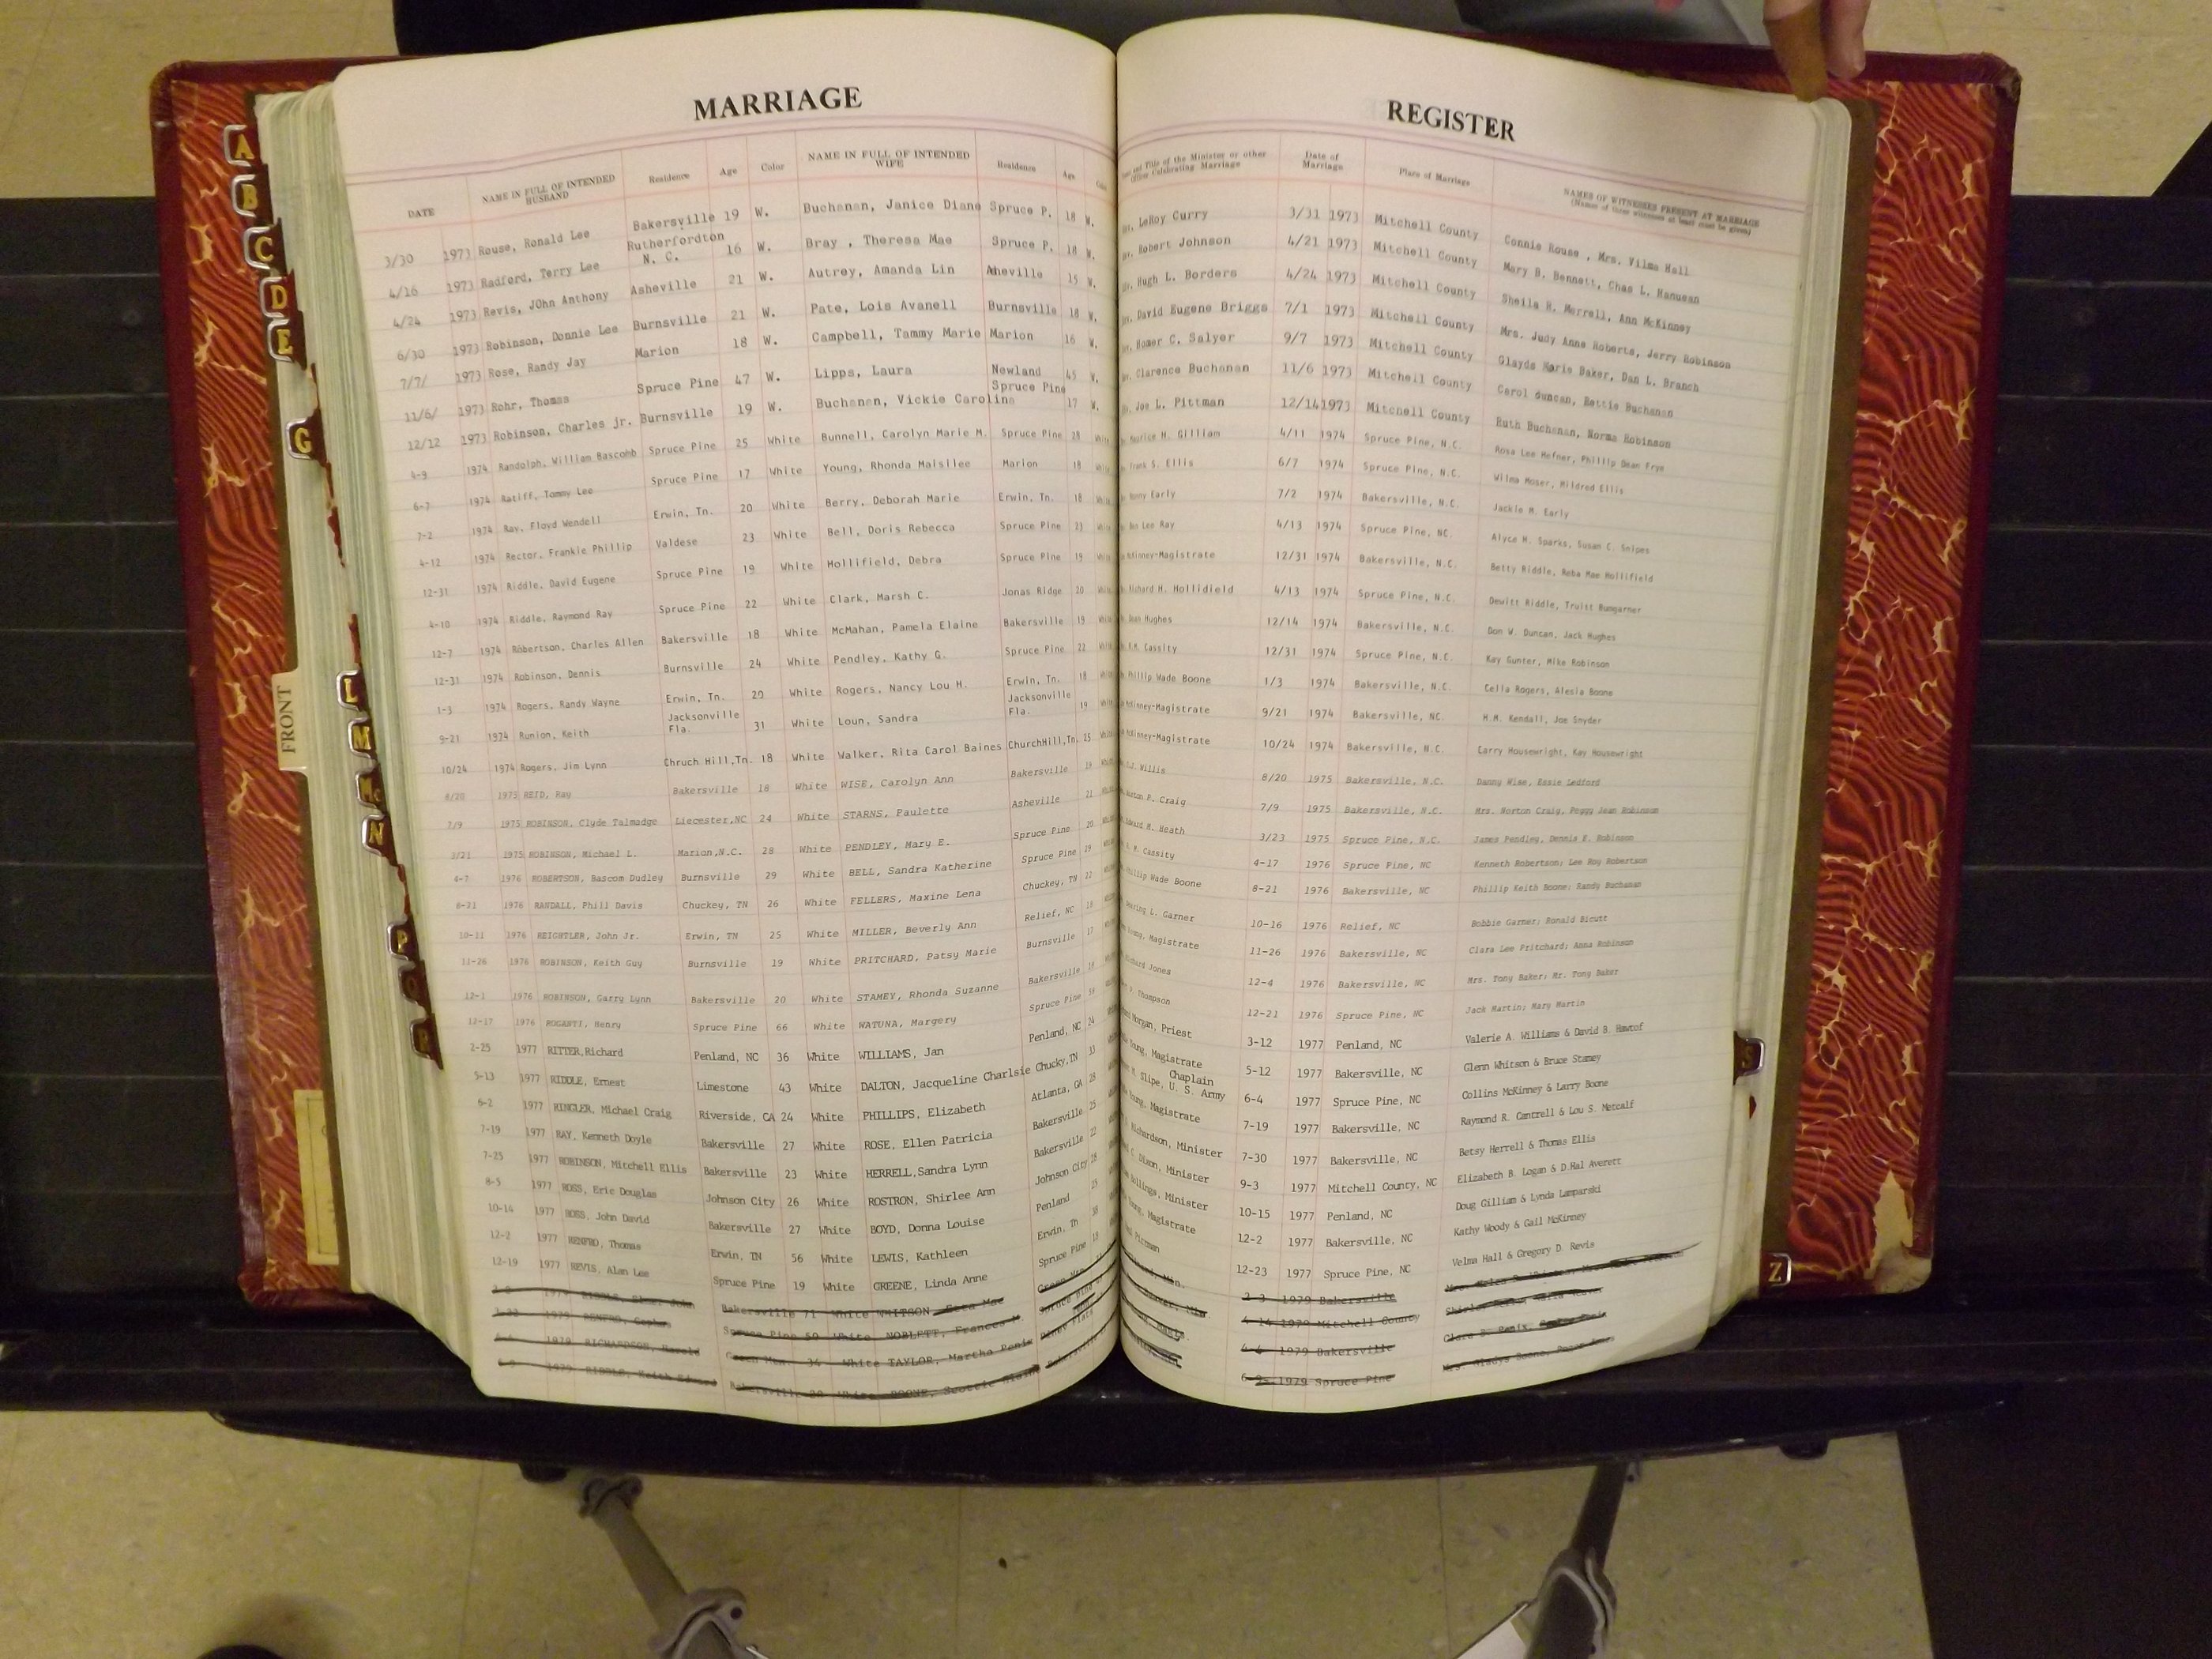 MARRIAGE
NAME IN FULL OF INTENDED WIFE
DATE NAME IN FULL OF INTENDED HUSBAND Residence Age Color Residence Age
3/30 1973 Rouse, Ronald Lee Bakersville 19 W. Buchanan, Janice Diane Spruce P. 18 W.
4/16 1973 Radford, Terry Lee Rutherfordton N. C. 16 W. Bray , Theresa Mae Spruce P. 18 W.
4/24 1973 Revis, JOhn Anthony Asheville 21 W. Autrey, Amanda Lin Aheville 15 W.
6/30 1973 Robinson, Donnie Lee Burnsville 21 W. Pate, Lois Avanell Burnsville 18 W.
7/7/ 1973 Rose, Randy Jay Marion 18 W. Campbell, Tammy Marie Marion 16 W.
11/6/ 1973 Rohr, Thomas Spruce Pine 47 W. Lipps, Laura Newland 45 W.
12/12 1973 Robinson, Charles jr. Burnsville 19 W. Buchanan, Vickie Carolina Spruce Pine 17 W.
4-9 1974 Randolph, William Bascobb Spruce Pine 25 White Bunnell, Carolyn Marie M. Spruce Pine 28
6-7 1974 Ratiff, Tommy Lee Spruce Pine 17 White Young, Rhonda Maisllee Marion 18
7-2 1974 Ray, Floyd Wendell Erwin, Tn. 20 White Berry, Deborah Marie Erwin, Tn. 18
4-12 1974 Rector, Frankie Phillip Valdese 23 White Bell, Doris Rebecca Spruce Pine 23
12-31 1974 Riddle, David Eugene Spruce Pine 19 White Hollifield, Debra Spruce Pine 19
4-10 1974 Riddle, Raymond Ray Spruce Pine 22 White Clark, Marsh C. Jonas Ridge 20
12-7 1974 Robertson, Charles Allen Bakersville 18 White McMahan, Pamela Elaine Bakersville 19
12-31 1974 Robinson, Dennis Burnsville 24 White Pendley, Kathy G. Spruce Pine 22
1-3 1974 Rogers, Randy Wayne Erwin, Tn. 20 White Rogers, Nancy Lou H. Erwin, Tn. 18
9-21 1974 Runion, Keith Jacksonville Fla. 31 White Loun, Sandra Jacksonville Fla. 19
10/24 1974 Rogers, Jim Lynn Chruch Hill,Tn. 18 White Walker, Rita Carol Baines ChurchHill,Tn. 25
8/20 1975 REID, Ray Bakersville 18 White WISE, Carolyn Ann Bakersville 19
7/9 1975 ROBINSON, Clyde Talmadge Liecester,NC 24 White STARNS, Paulette Asheville 21
3/21 1975 ROBINSON, Michael L. Marion,N.C. 28 White PENDLEY, Mary E. Spruce Pine 20
4-7 1976 ROBERTSON, Bascom Dudley Burnsville 29 White BELL, Sandra Katherine Spruce Pine 29
8-21 1976 RANDALL, Phill Davis Chuckey, TN 26 White FELLERS, Maxine Lena Chuckey, TN 22
10-11 1976 REIGHTLER, John Jr. Erwin, TN 25 White MILLER, Beverly Ann Relief, NC 18
11-26 1976 ROBINSON, Keith Guy Burnsville 19 White PRITCHARD, Patsy Marie Burnsville 17
12-1 1976 ROBINSON, Garry Lynn Bakersville 20 White STAMEY, Rhonda Suzanne Bakersville 18
12-17 1976 ROGANTI, Henry Spruce Pine 66 White WATUNA, Margery Spruce Pine
2-25 1977 RITTER,Richard Penland, NC 36 White WILLIAMS, Jan Penland, NC 24
5-13 1977 RIDDLE, Ernest Limestone 43 White DALTON, Jacqueline Charlsie Chucky,TN 33
6-2 1977 RINGLER, Michael Craig Riverside, CA 24 White PHILLIPS, Elizabeth Atlanta, GA 28
7-19 1977 RAY, Kenneth Doyle Bakersville 27 White ROSE, Ellen Patricia Bakersville 25
7-25 1977 ROBINSON, Mitchell Ellis Bakersville 23 White HERRELL,Sandra Lynn Bakersville 22
8-5 1977 ROSS, Eric Douglas Johnson City 26 White ROSTRON, Shirlee Ann Johnson City 28
10-14 1977 ROSS, John David Bakersville 27 White BOYD, Donna Louise Penland 25
12-2 1977 RENFRO, Thomas Erwin, TN 56 White LEWIS, Kathleen Erwin, TN 38
12-19 1977 REVIS, Alan Lee Spruce Pine 19 White GREENE, Linda Anne Spruce Pine 18
1979 Bakersville 71 White WHITSON
1979 RENFRO, Spruce Pine 59 White NOBLETT, Frances
1979 RICHARDSON, Harold Green Mtn. 34 White TAYLOR, Martha Penix
1979 RIDDLE, Keith Edward Bakersville, 20 White BOONE, Scottie
REGISTER
Title of the Minister or other Officer Celebrating Marriage Date of Marriage Place of Marriage NAMES OF WITNESSES PRESENT AT MARRIAGE
(Names of three witnesses at least must be given)
LeRoy Curry 3/31 1973 Mitchell County Connie Rouse , Mrs. Vilma Hall
Robert Johnson 4/21 1973 Mitchell County Mary B. Bennett, Chas L. Hanussn
Hugh L. Borders 4/24 1973 Mitchell County Sheila H. Morrell, Ann McKinney
David Eugene Briggs 7/1 1973 Mitchell County Mrs. Judy Anne Roberts, Jerry Robinson
Homer C. Salyer 9/7 1973 Mitchell County Glayds Marie Baker, Dan L. Branch
Clarence Buchanan 11/6 1973 Mitchell County Carol duncan, Hettie Buchanan
Joe L. Pittman 12/14 1973 Mitchell County Ruth Buchanan, Norma Robinson
Maurice H. Gilliam 4/11 1974 Spruce Pine, N.C. Rosa Lee Hefner, Phillip Dean Frye
Frank S. Ellis 6/7 1974 Spruce Pine, N.C. Wilma Moser, Mildred Ellis
Early 7/2 1974 Bakersville, N.C. Jackie M. Early
Lee Ray 4/13 1974 Spruce Pine, NC. Alyce H. Sparks, Susan C. Snipes
McKinney-Magistrate 12/31 1974 Bakersville, N.C. Betty Riddle, Reba Mae Hollifield
Richard H. Hollidield 4/13 1974 Spruce Pine, N.C. Dewitt Riddle, Truitt Bumgarner
Hughes 12/14 1974 Bakersville, N.C. Don W. Duncan, Jack Hughes
Cassity 12/31 1974 Spruce Pine, N.C. Kay Gunter, Mike Robinson
Phillip Wade Boone 1/3 1974 Bakersville, N.C. Cella Rogers, Alesia Boone
McKinney-Magistrate 9/21 1974 Bakersville, NC. H.M. Kendall, Joe Snyder
McKinney-Magistrate 10/24 1974 Bakersville, N.C. Larry Housewright, Kay Housewright
Willis 8/20 1975 Bakersville, N.C. Danny Wise, Essie Ledford
Norton P. Craig 7/9 1975 Bakersville, N.C. Mrs. Norton Craig, Peggy Jean Robinson
Edward R. Heath 3/23 1975 Spruce Pine, N.C. James Pendley, Dennis E. Robinson
Cassity 4-17 1976 Spruce Pine, NC Kenneth Robertson; Lee Roy Robertson
Phillip Wade Boone 8-21 1976 Bakersville, NC Phillip Keith Boone; Randy Buchanan
L. Garner 10-16 1976 Relief, NC Bobbie Garner; Ronald Bicutt
Young, Magistrate 11-26 1976 Bakersville, NC Clara Lee Pritchard; Anna Robinson
Richard Jones 12-4 1976 Bakersville, NC Mrs. Tony Baker; Mr. Tony Baker
Thompson 12-21 1976 Spruce Pine, NC Jack Martin; Mary Martin
Morgan, Priest 3-12 1977 Penland, NC Valerie A. Williams & David B. Hawoof
Young, Magistrate 5-12 1977 Bakersville, NC Glenn Whitson & Bruce Stamey
Chaplain
R. Slipe, U. S. Army 6-4 1977 Spruce Pine, NC Collins McKinney & Larry Boone
Young, Magistrate 7-19 1977 Bakersville, NC Raymond R. Cantrell & Lou S. Metcalf
Richardson, Minister 7-30 1977 Bakersville, NC Betsy Herrell & Thomas Ellis
C. Dixon, Minister 9-3 1977 Mitchell County, NC Elizabeth B. Logan & D.Hal Averett
Billings, Minister 10-15 1977 Penland, NC Doug Gilliam & Lynda Lamparski
Young, Magistrate 12-2 1977 Bakersville, NC Kathy Woody & Gail McKinney
Pitman 12-23 1977 Spruce Pine, NC Velma Hall & Gregory D. Revis
2-3 1979 Bakersville
4-14 1979 Mitchell County
1979 Bakersville Clara
1979 Spruce Pine Mrs. Gladys Boone,
A
B
C
D
E
G
FRONT
L
M
Mc
N
P
Q
R
S
Z